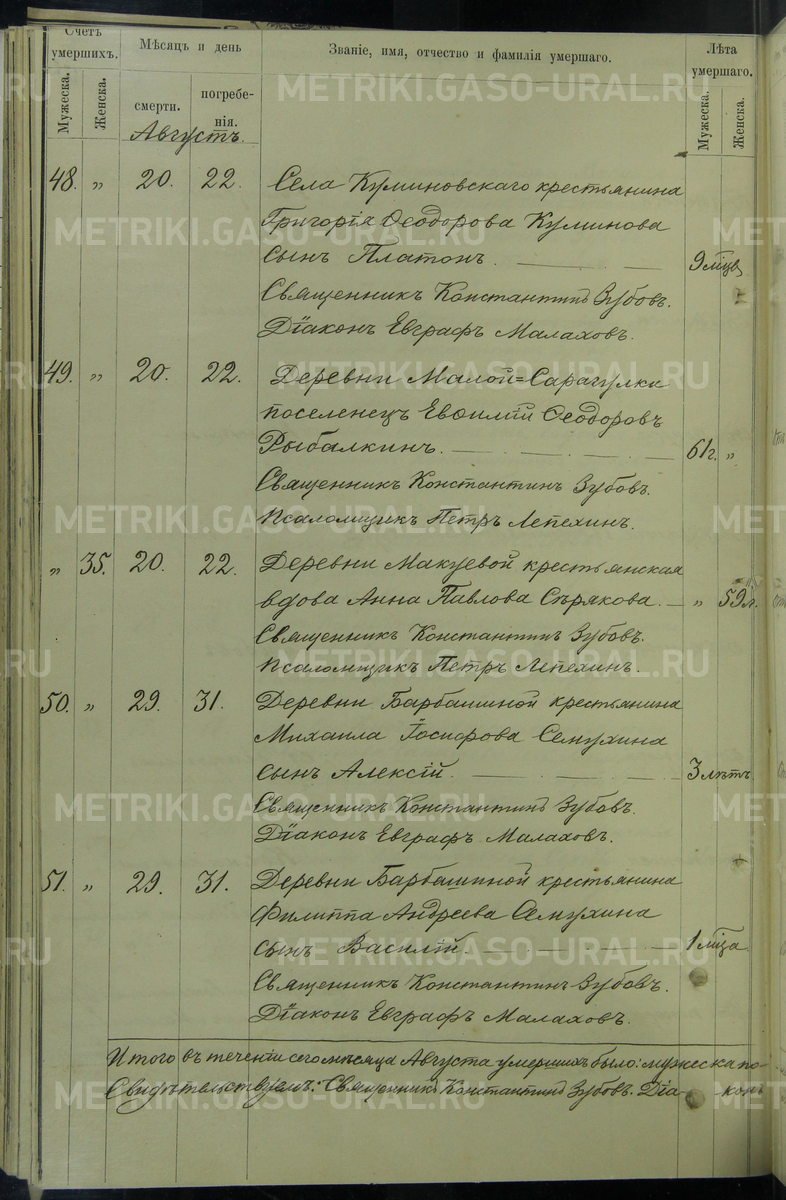 Счетъ умершихъ.
Мѣсяцъ и день
Званіе, имя, отчество и фамилія умершаго.
Лѣта умершаго.
Мужеска.
Женска.
смерти.
погребенія.
Мужеска.
Женска.
Августъ.
48. „ 20. 22. Села Куминовскаго крестьянина
Григорія Ѳеодорова Куминова
сынъ Платонъ. 9 мѣцв
Священникъ Константинъ Зубовъ.
Діаконъ Евграфъ Малаховъ.
49. „ 20. 22. Деревни Малой=Сарагулки
поселенецъ Евѳимій Ѳеодоровъ
Рыбалкинъ. 61г. „
Священникъ Константинъ Зубовъ.
Псаломщикъ Петръ Лепехинъ.
„ 35. 20. 22. Деревни Макуевой крестьянская
вдова Анна Павлова Сѣрякова. „ 59л.
Священникъ Константинъ Зубовъ.
Псаломщикъ Петръ Лепехинъ.
50. „ 29. 31. Деревни Барбашиной крестьянина
Михаила Іосифова Семухина
сынъ Алексій. 3 лѣтъ
Священникъ Константинъ Зубовъ.
Діаконъ Евграфъ Малаховъ.
51. „ 29. 31. Деревни Барбашиной крестьянина
Филиппа Андреева Семухина
сынъ Василій. 1 мѣца
Священникъ Константинъ Зубовъ.
Діаконъ Евграфъ Малаховъ.
Итого въ теченіи сего мѣсяца Августа умершихъ было: мужеска по-
Свидѣтельствуемъ: Священникъ Константинъ Зубовъ. Діа- конъ
METRIKI.GASO-URAL.RU